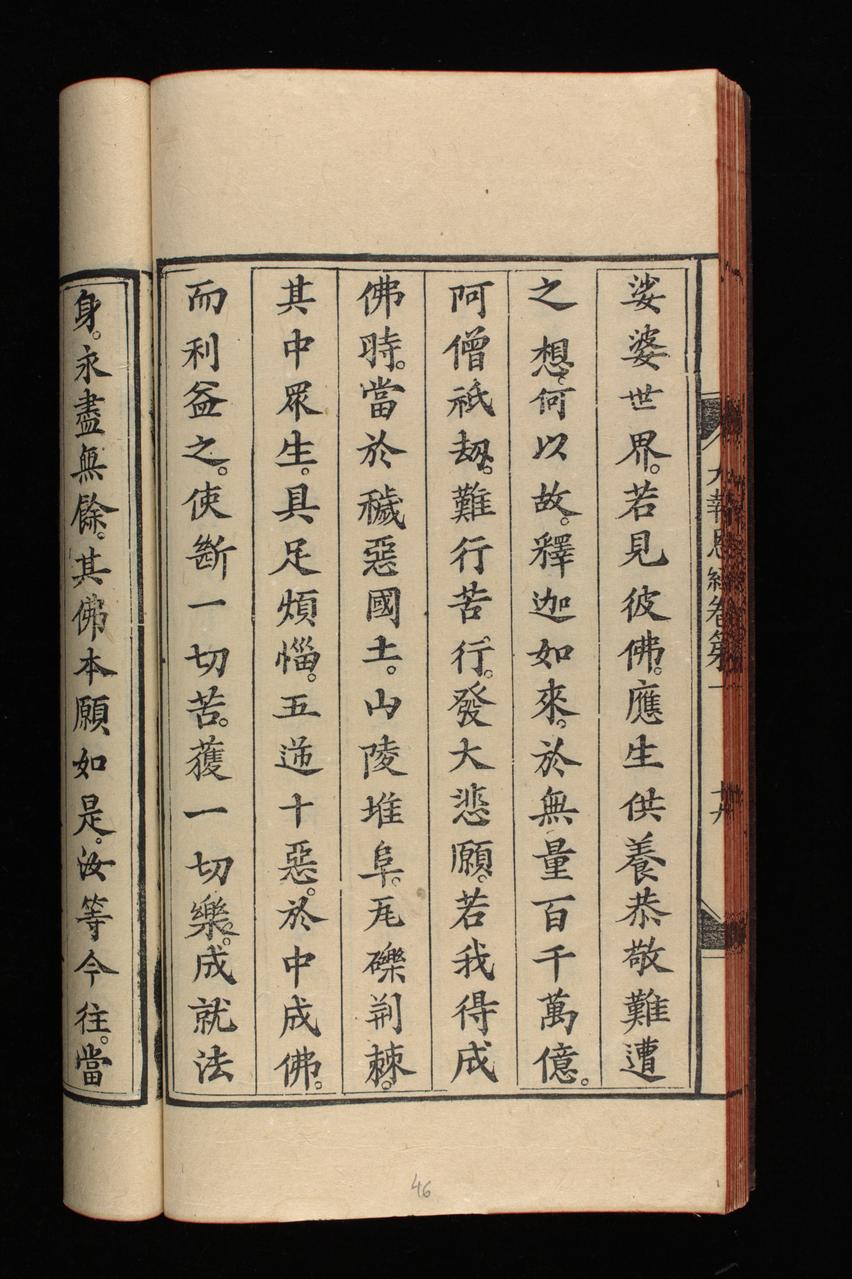 大報恩經卷第一
娑婆世界。若見彼佛。應生供養恭敬難遭
之想。何以故。釋迦如來。於無量百千萬億。
阿僧祇劫。難行苦行。發大悲願。若我得成
佛時。當於穢惡國土。山陵堆阜。瓦礫荆棘。
其中眾生。具足煩惱。五逆十惡。於中成佛。
而利益之。使斷一切苦。獲一切樂。成就法
身。永盡無餘。其佛本願如是。汝等今往。當
46